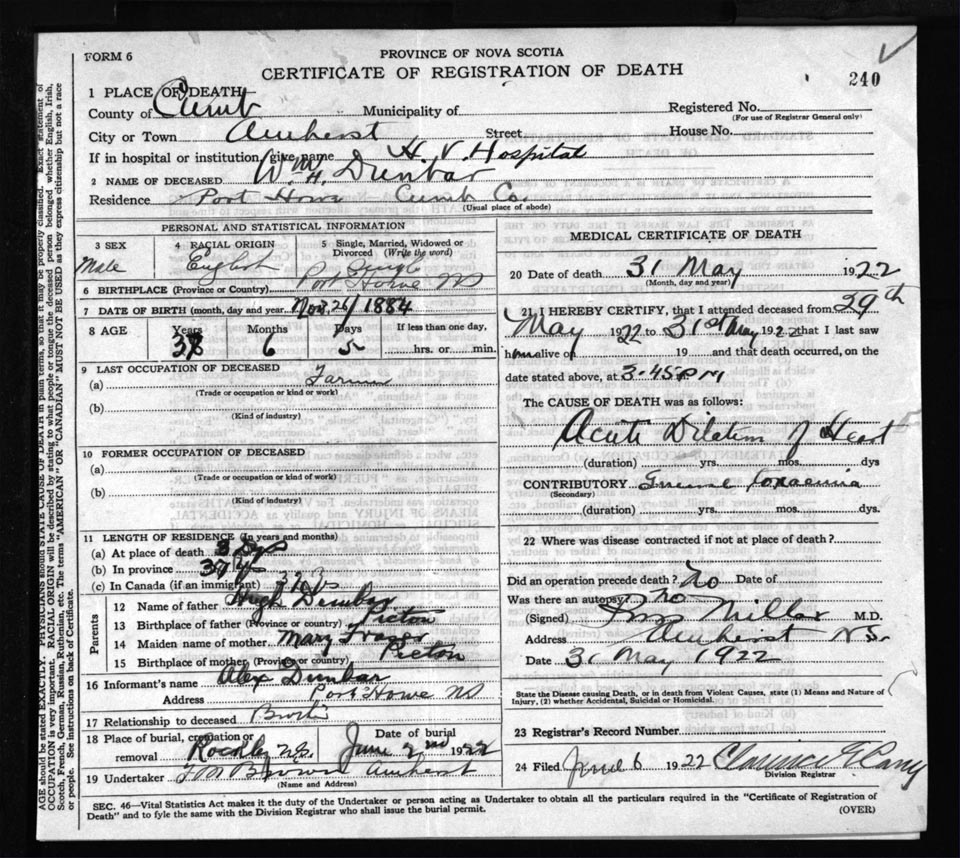 FORM 6
PROVINCE OF NOVA SCOTIA
CERTIFICATE OF REGISTRATION OF DEATH
240
1 PLACE OF DEATH—
County of Cumb Municipality of Registered No.
(For use of Registrar General only)
City or Town Amherst Street House No.
If in hospital or institution, give name H. V. Hospital
2 NAME OF DECEASED Wm H. Dunbar
Residence Port Howe Cumb Co.
(Usual place of abode)
PERSONAL AND STATISTICAL INFORMATION
3 SEX 4 RACIAL ORIGIN 5 Single, Married, Widowed or Divorced (Write the word)
Male English Single
6 BIRTHPLACE (Province or Country) Port Howe NS
7 DATE OF BIRTH (month, day and year) Nov. 26/1884
8 AGE Years Months Days If less than one day,
6 5 hrs. or min.
9 LAST OCCUPATION OF DECEASED
(a) Farmer
(Trade or occupation or kind or work)
(b)
(Kind of industry)
10 FORMER OCCUPATION OF DECEASED
(a)
(Trade or occupation or kind or work)
(b)
(Kind of industry)
11 LENGTH OF RESIDENCE (In years and months)
(a) At place of death 3 Dys
(b) In province 37 y
(c) In Canada (if an immigrant)
Parents
12 Name of father Hugh Dunbar
13 Birthplace of father (Province or country) Picton
14 Maiden name of mother Mary Frazer
15 Birthplace of mother (Province or country) Picton
16 Informant's name Alex Dunbar
Address Port Howe NS
17 Relationship to deceased Brother
18 Place of burial, cremation or removal Date of burial
Rockley N.S. June 2nd 1922
19 Undertaker Brown Amherst
(Name and Address)
MEDICAL CERTIFICATE OF DEATH
20 Date of death 31 May 1922
(Month, day and year)
21 I HEREBY CERTIFY, that I attended deceased from 29th
May 1922 to 31st May 1922 that I last saw
him alive on 19 and that death occurred, on the
date stated above, at 3.45 P M
The CAUSE OF DEATH was as follows:
Acute Dilation of Heart
(duration) yrs. mos. dys
CONTRIBUTORY
(Secondary)
(duration) yrs. mos. dys.
22 Where was disease contracted if not at place of death?
Did an operation precede death? No Date of
Was there an autopsy? No
(Signed) Millar M.D.
Address Amherst N.S.
Date 31 May 1922
State the Disease causing Death, or in death from Violent Causes, state (1) Means and Nature of
Injury, (2) whether Accidental, Suicidal or Homicidal.
23 Registrar's Record Number
24 Filed June 6 1922 Clarence
Division Registrar
SEC. 46—Vital Statistics Act makes it the duty of the Undertaker or person acting as Undertaker to obtain all the particulars required in the "Certificate of Registration of
Death" and to fyle the same with the Division Registrar who shall issue the burial permit. (OVER)
AGE should be stated EXACTLY. PHYSICIANS should STATE CAUSE OF DEATH in plain terms, so that it may be properly classified. Exact statement of
OCCUPATION is very important. RACIAL ORIGIN will be described by stating to what people or tongue the deceased person belonged whether English, Irish,
Scotch, French, German, Russian, Ruthenian, etc. The terms "AMERICAN" OR "CANADIAN" MUST NOT BE USED as they express citizenship but not a race
or people. See instructions on back of Certificate.